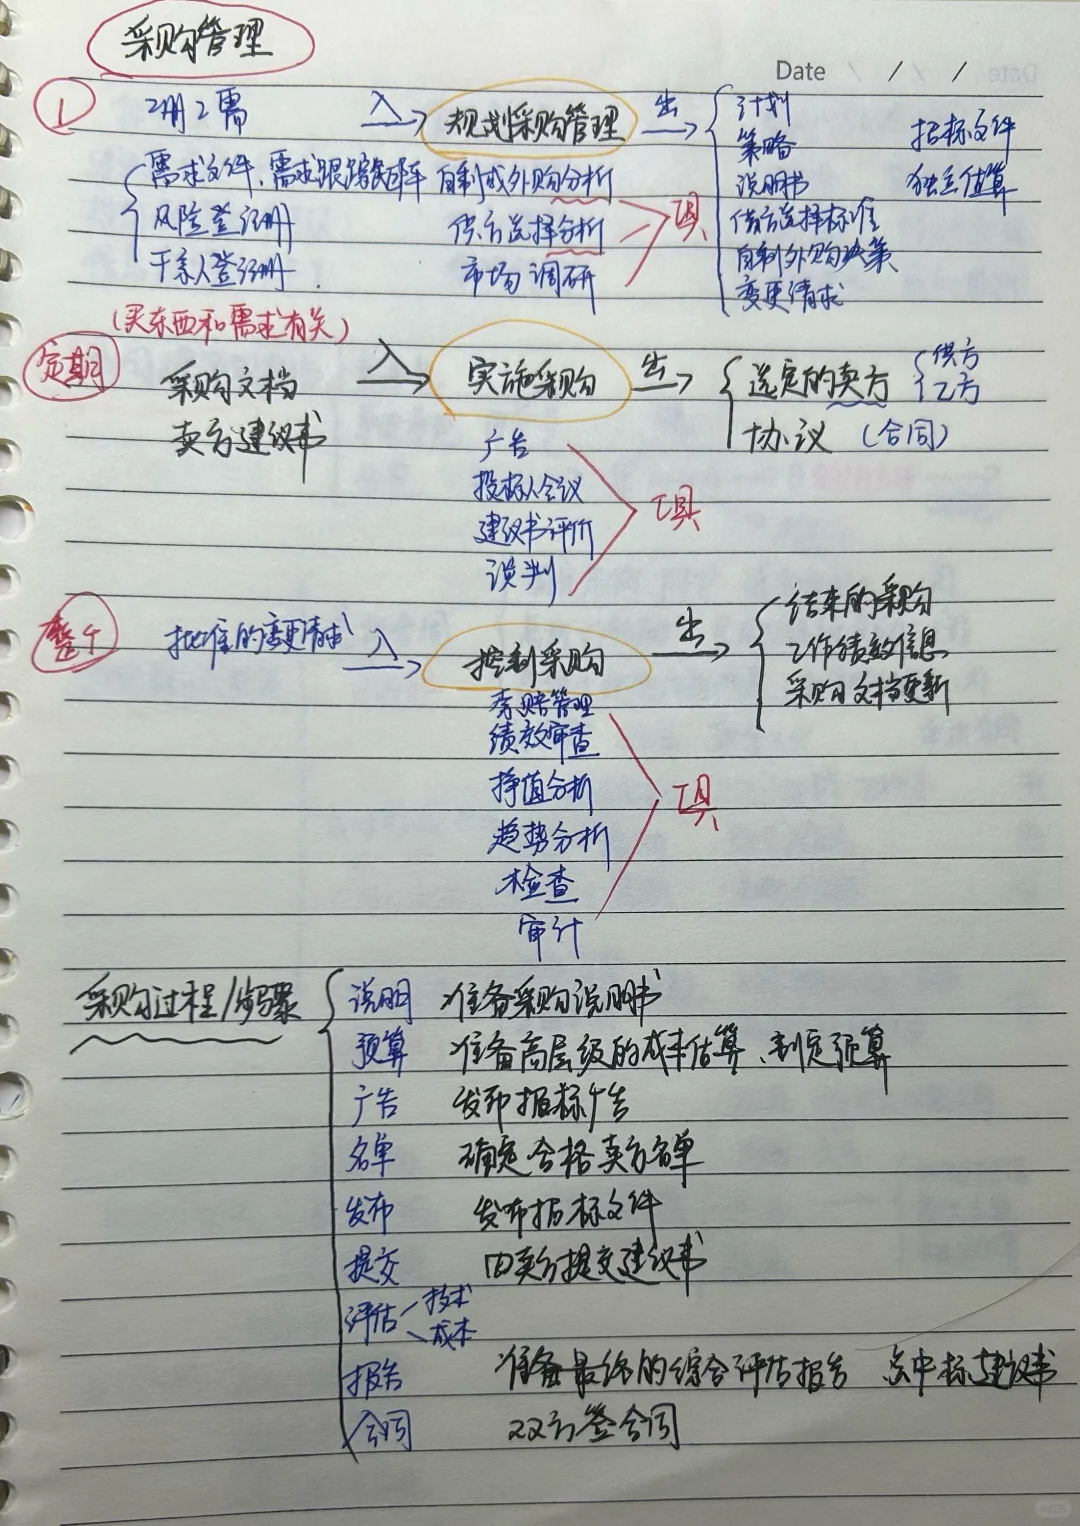 采购管理
Date / / /
1 2册2需 入 规划采购管理 出 计划
策略 招标文件
需求文件、需求跟踪矩阵 自制或外购分析 说明书 独立估算
风险登记册 供方选择分析 工具 供方选择标准
干系人登记册 市场调研 自制外购决策
变更请求
(买东西和需求有关)
定期 采购文档 入 实施采购 出 选定的卖方 供方 乙方
卖方建议书 协议 (合同)
广告
投标人会议 工具
建议书评价
谈判
整个 批准的变更请求 入 控制采购 出 结束的采购
工作绩效信息
采购文档更新
索赔管理
绩效审查
挣值分析 工具
趋势分析
检查
审计
采购过程/步骤 说明 准备采购说明书
预算 准备高层级的成本估算、制定预算
广告 发布招标广告
名单 确定合格卖方名单
发布 发布招标文件
提交 由卖方提交建议书
评估 技术 成本
报告 准备最终的综合评估报告 点中标建议书
合同 双方签合同